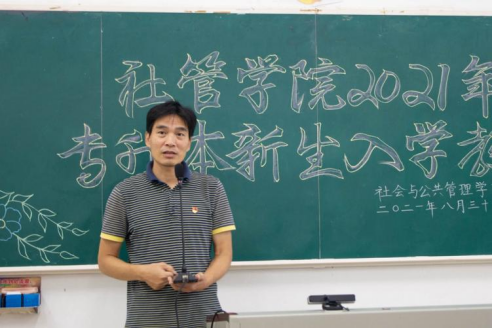 社管学院2021年
专升本新生入学教
社会与公共管理学
二〇二一年八月三十